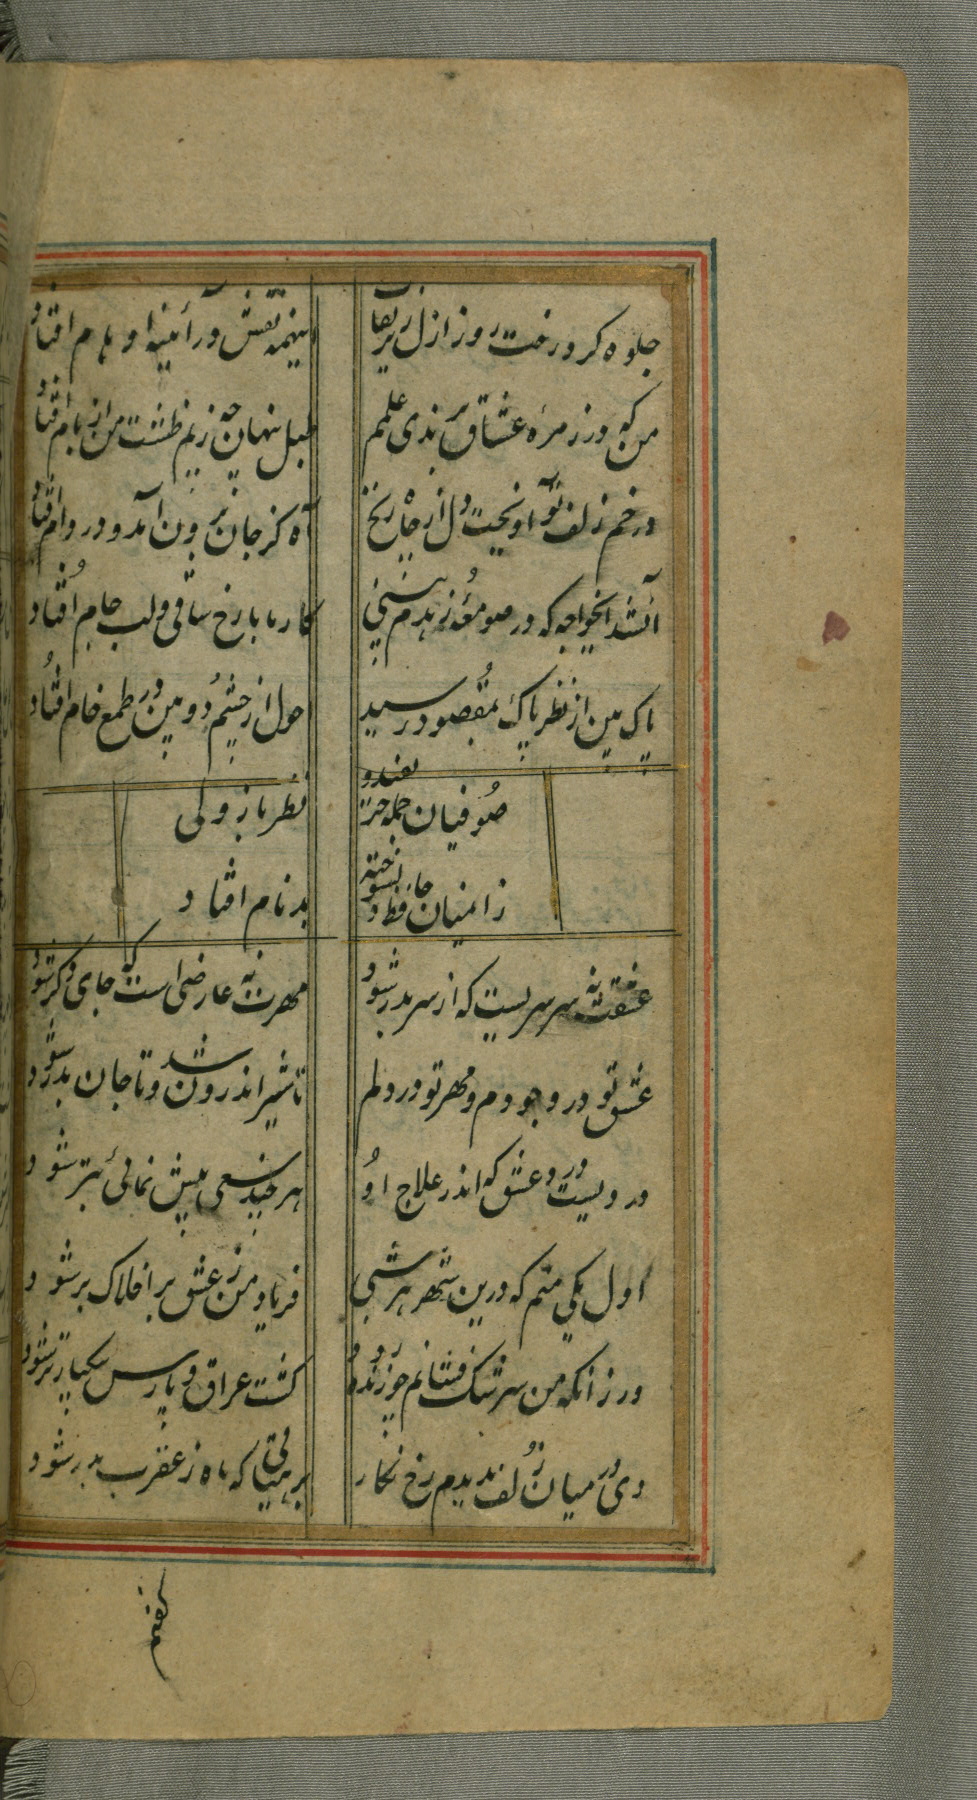 جلوه کرد رخت روز ازل زیر نقاب اینهمه نقش در آئینه اوهام افتاد
من که در زمرهٔ عشاق برندی علمم طبل پنهان چه زنم طشت من از بام افتاد
در خم زلف تو آویخت دل از چاه زنخ آه کز چاه برون آمد و در دام افتاد
آنشد ایخواجه که در صومعه بازم بینی کار ما با رخ ساقی و لب جام افتاد
پاک بین از نظر پاک بمقصود رسید احول از چشم دو بین در طمع خام افتاد
صوفیان جمله حریفند و نظرباز ولی
زانمیان حافظ دلسوخته بدنام افتاد
عشقت نه سرسریست که از سر بدر شود مهرت نه عارضی است که جای دگر شود
عشق تو در وجودم و مهر تو در دلم با شیر اندرون شد و با جان بدر شود
دردیست درد عشق که اندر علاج او هر چند سعی بیش نمائی بتر شود
اول یکی منم که درین شهر هر شبی فریاد من ز عشق بر افلاک بر شود
ور زانکه من سرشک فشانم چو زنده رود کشت عراق و پارس بیکبار تر شود
دی در میان زلف بدیدم رخ نگار بر هیأتی که ماه ز عقرب بدر شود
گفتم